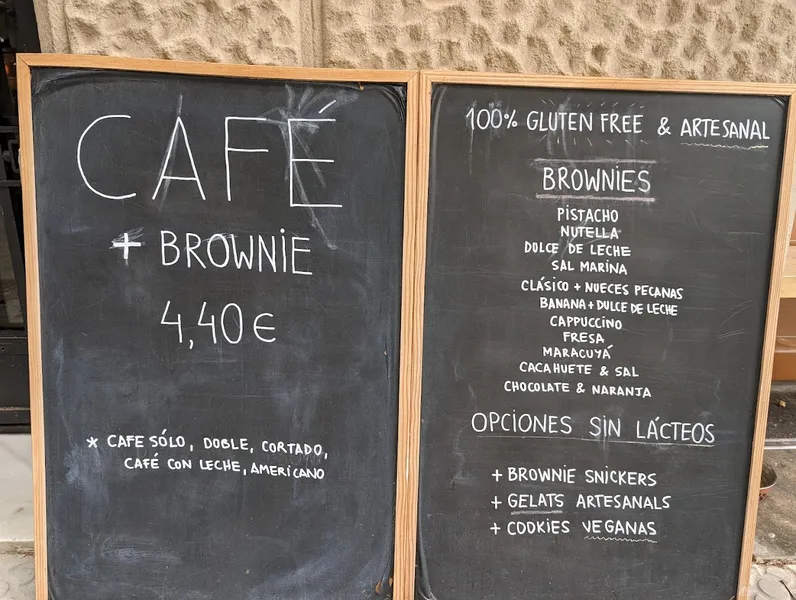 CAFÉ
+ BROWNIE
4,40€
* CAFE SÓLO, DOBLE, CORTADO,
CAFÉ CON LECHE, AMERICANO
100% GLUTEN FREE & ARTESANAL
BROWNIES
PISTACHO
NUTELLA
DULCE DE LECHE
SAL MARINA
CLÁSICO + NUECES PECANAS
BANANA + DULCE DE LECHE
CAPPUCCINO
FRESA
MARACUYÁ
CACAHUETE & SAL
CHOCOLATE & NARANJA
OPCIONES SIN LÁCTEOS
+ BROWNIE SNICKERS
+ GELATS ARTESANALS
+ COOKIES VEGANAS